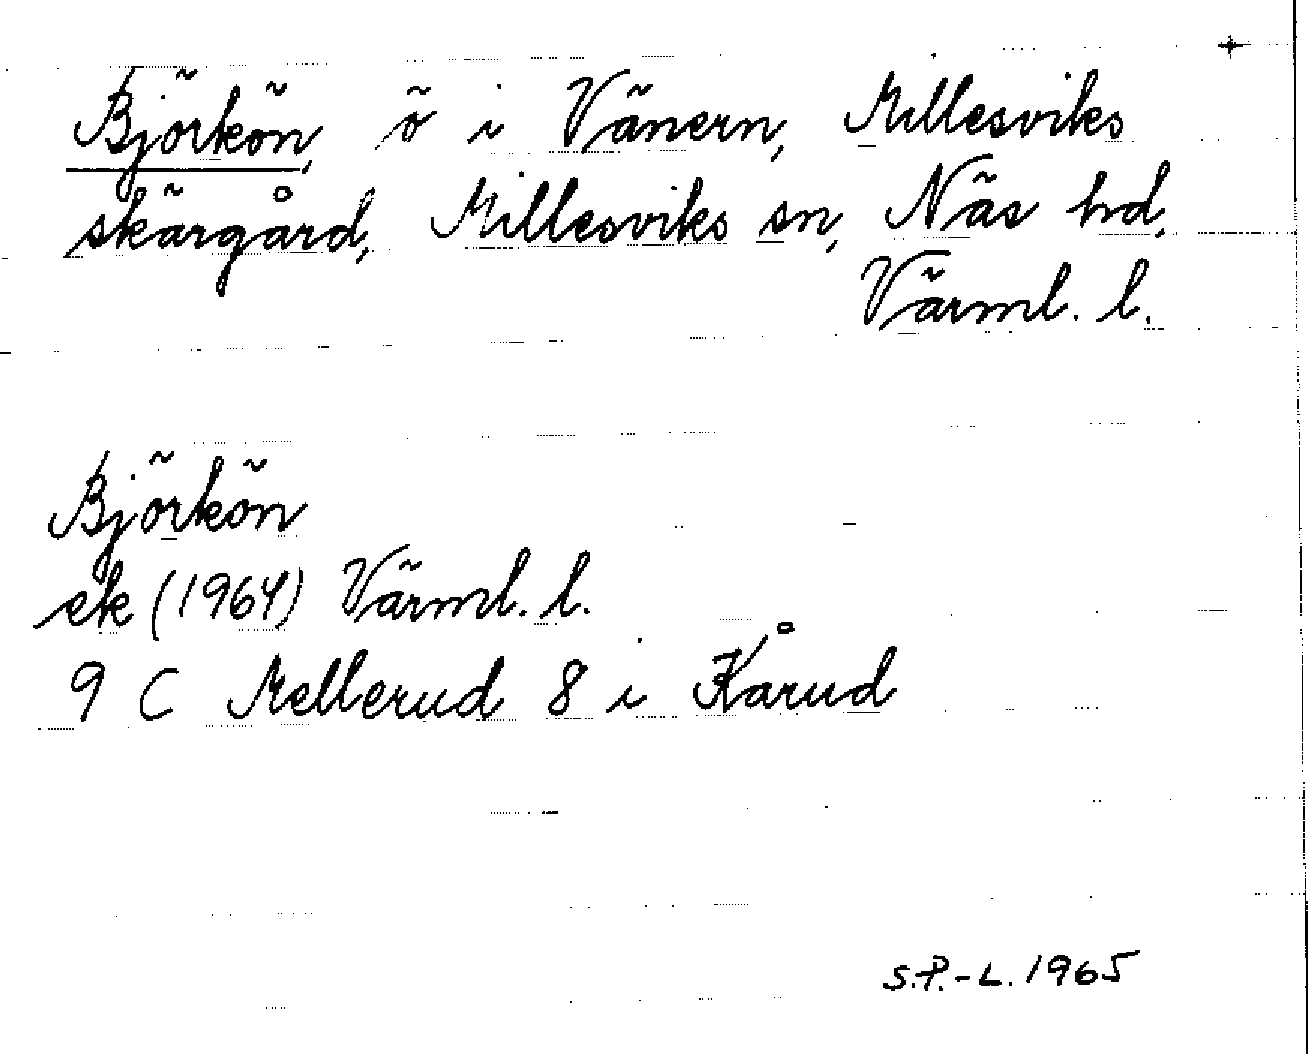 Björkön, ö i Vänern, Millesviks
skärgård, Millesviks sn, Näs hd,
Värml. l.
Björkön
ek (1964) Värml. l.
9 C Mellerud 8 i Kårud
S.P.-L. 1965